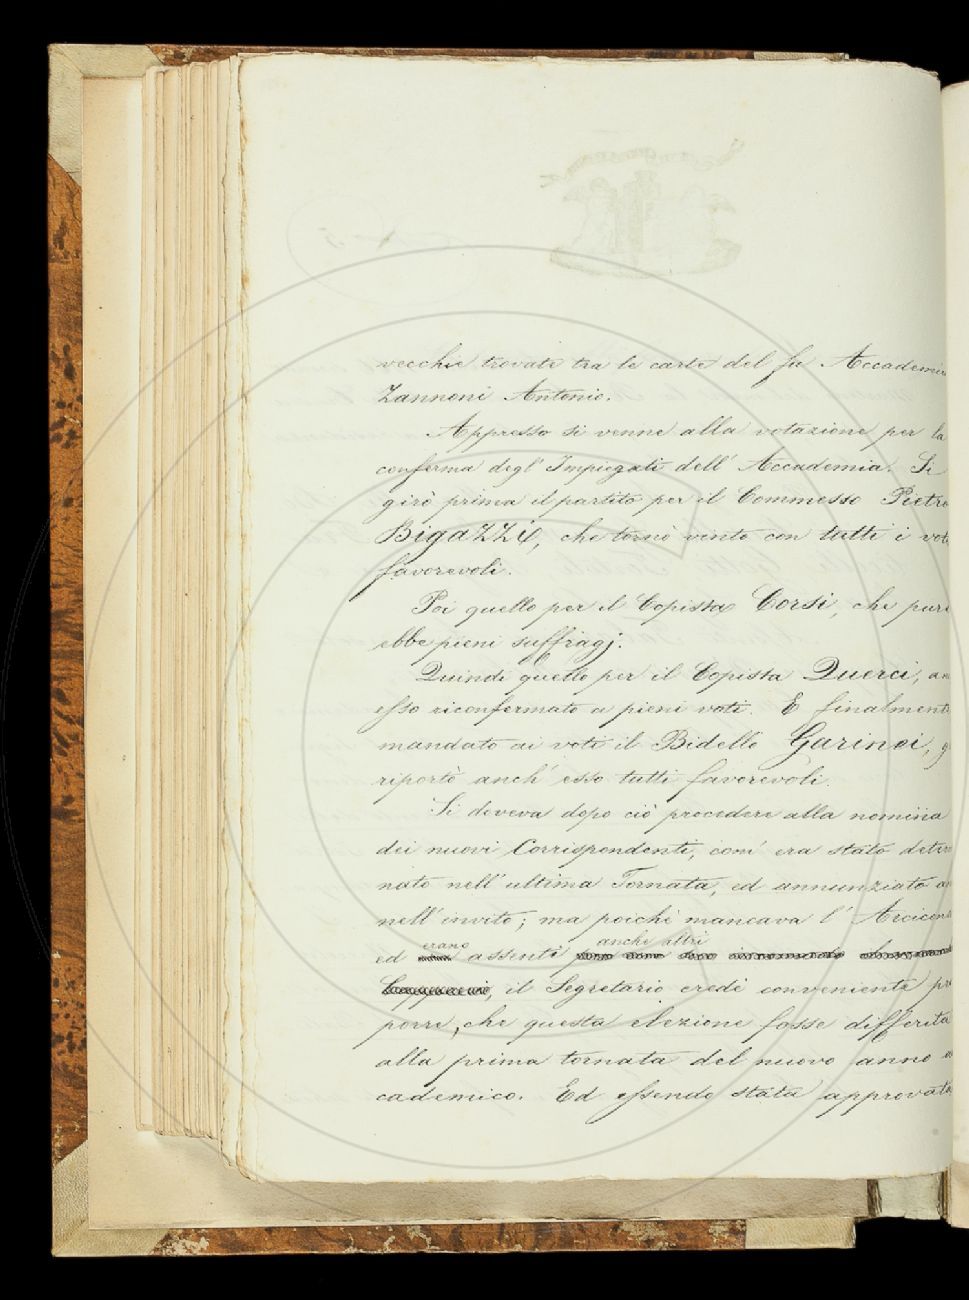 vecchie trovate tra le carte del fu Accademico
Zannoni Antonio.
Appresso si venne alla votazione per la
conferma degl' Impiegati dell' Accademia. Si
girò prima il partito per il Commesso Pietro
Bigazzi, che tornò vinto con tutti i voti
favorevoli.
Poi quello per il Copista Corsi, che pure
ebbe pieni suffragj.
Quindi quello per il Copista Querci, an
esso riconfermato a pieni voti. E finalmente
mandato ai voti il Bidello Garinei, g
riportò anch' esso tutti favorevoli.
Si doveva dopo ciò procedere alla nomina
dei nuovi Corrispondenti, com' era stato determi
nato nell' ultima Tornata, ed annunziato an
nell' invito; ma poichè mancava l' Arcicons
erano anche altri
ed assenti
il Segretario credè conveniente pro
porre, che questa elezione fosse differita
alla prima tornata del nuovo anno ac
cademico. Ed essendo stata approvata